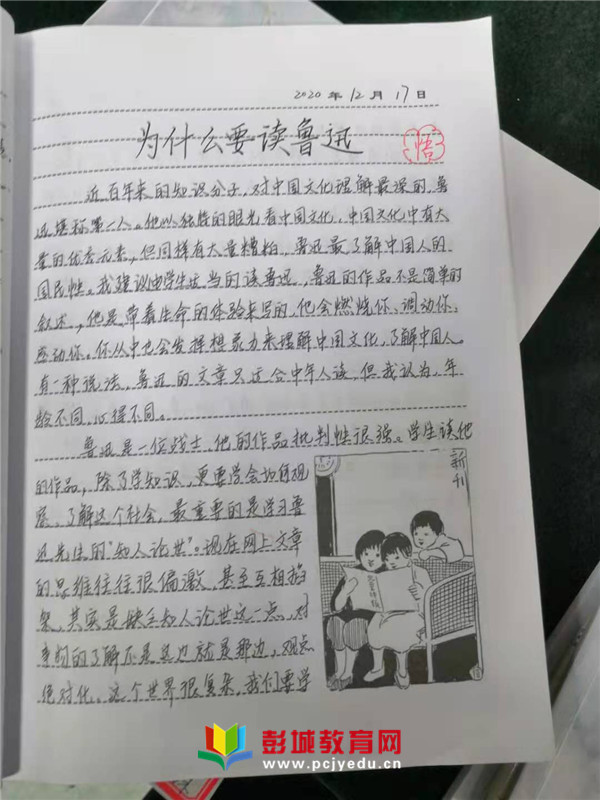 2020 年 12 月 17 日
为什么要读鲁迅
悟
近百年来的知识分子,对中国文化理解最深的,鲁
迅堪称第一人。他以独特的眼光看中国文化,中国文化中有大
量的优秀元素,但同样有大量糟粕,鲁迅最了解中国人的
国民性。我建议中学生适当的读鲁迅,鲁迅的作品不是简单的
叙述,他是带着生命的体验来写的,他会燃烧你、调动你、
感动你。你从中也会发挥想象力来理解中国文化,了解中国人。
有一种说法,鲁迅的文章只适合中年人读,但我认为,年
龄不同,心得不同。
鲁迅是一位战士,他的作品批判性很强。学生读他
的作品,除了学知识,更要学会如何观
察、了解这个社会,最重要的是学习鲁
迅先生的“知人论世”。现在网上文章
的思维往往很偏激,甚至互相掐
架,其实是缺乏知人论世这一点,对
事物的了解不是这边就是那边,观点
绝对化。这个世界很复杂,我们要学
新刊
彭城教育网
www.pcjyedu.cn